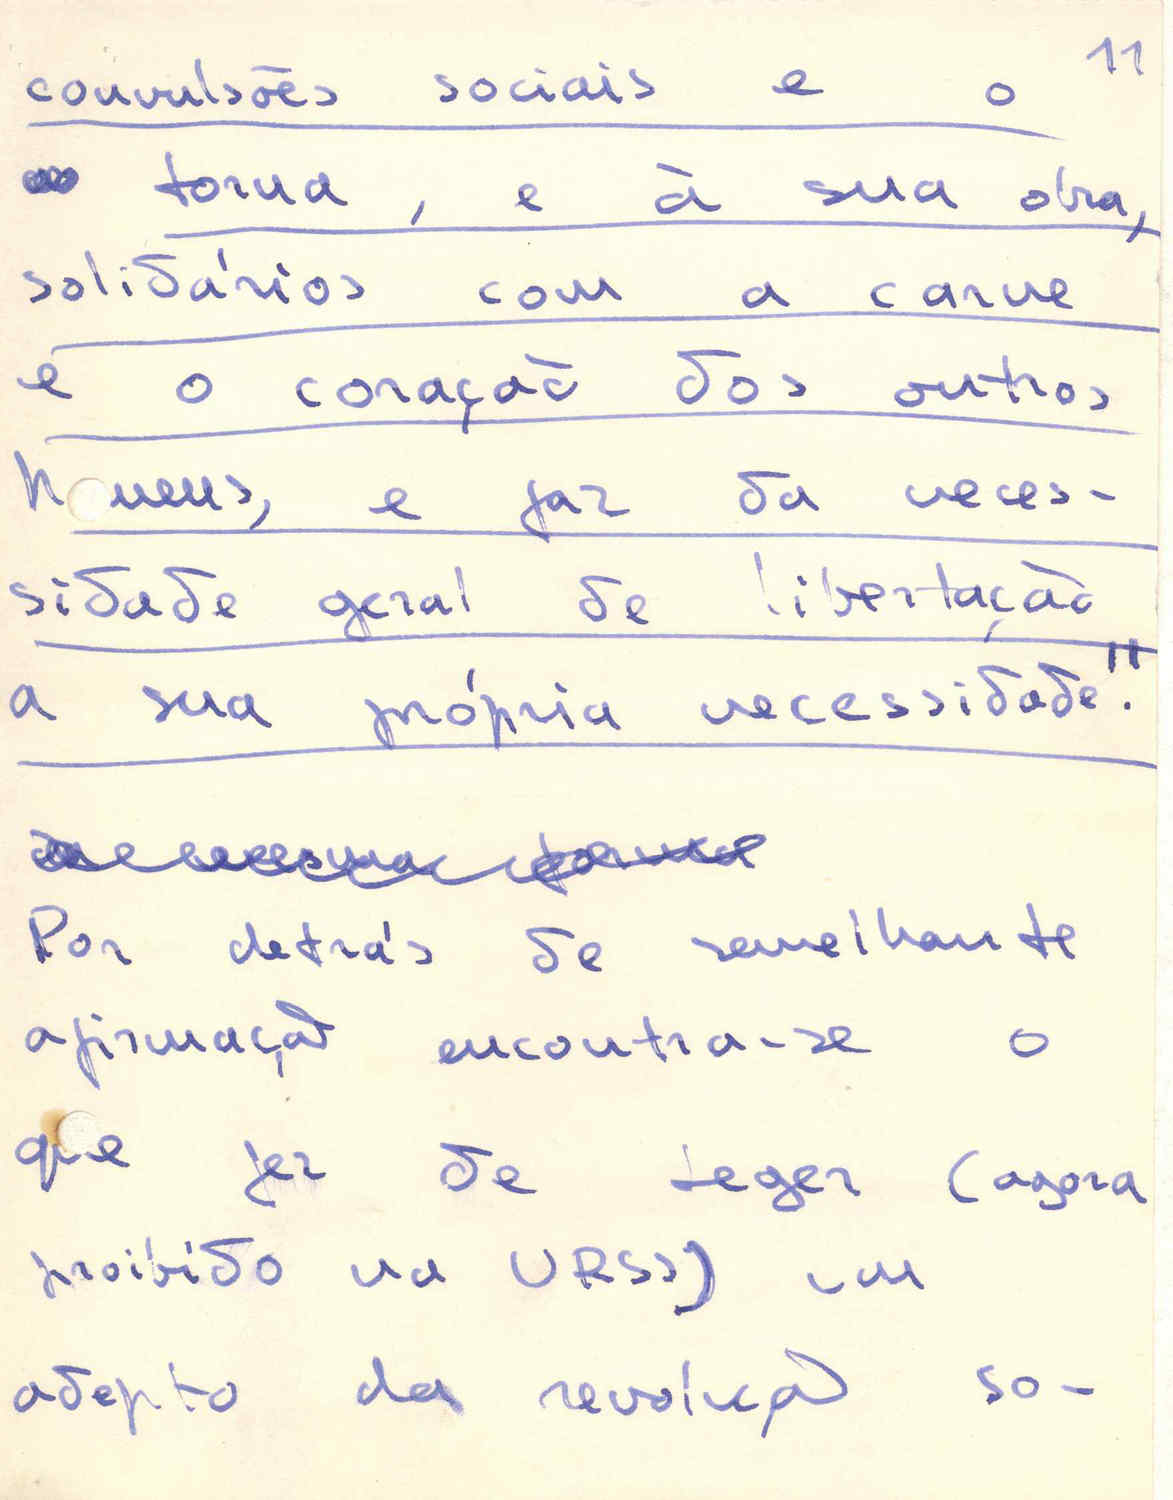 11
convulsões sociais e o
torna, e à sua obra,
solidários com a carne
e o coração dos outros
homens, e faz da neces-
sidade geral de libertação
a sua própria necessidade".
Por detrás de semelhante
afirmação encontra-se o
que fez de Leger (agora
proibido na URSS) um
adepto da revolução so-